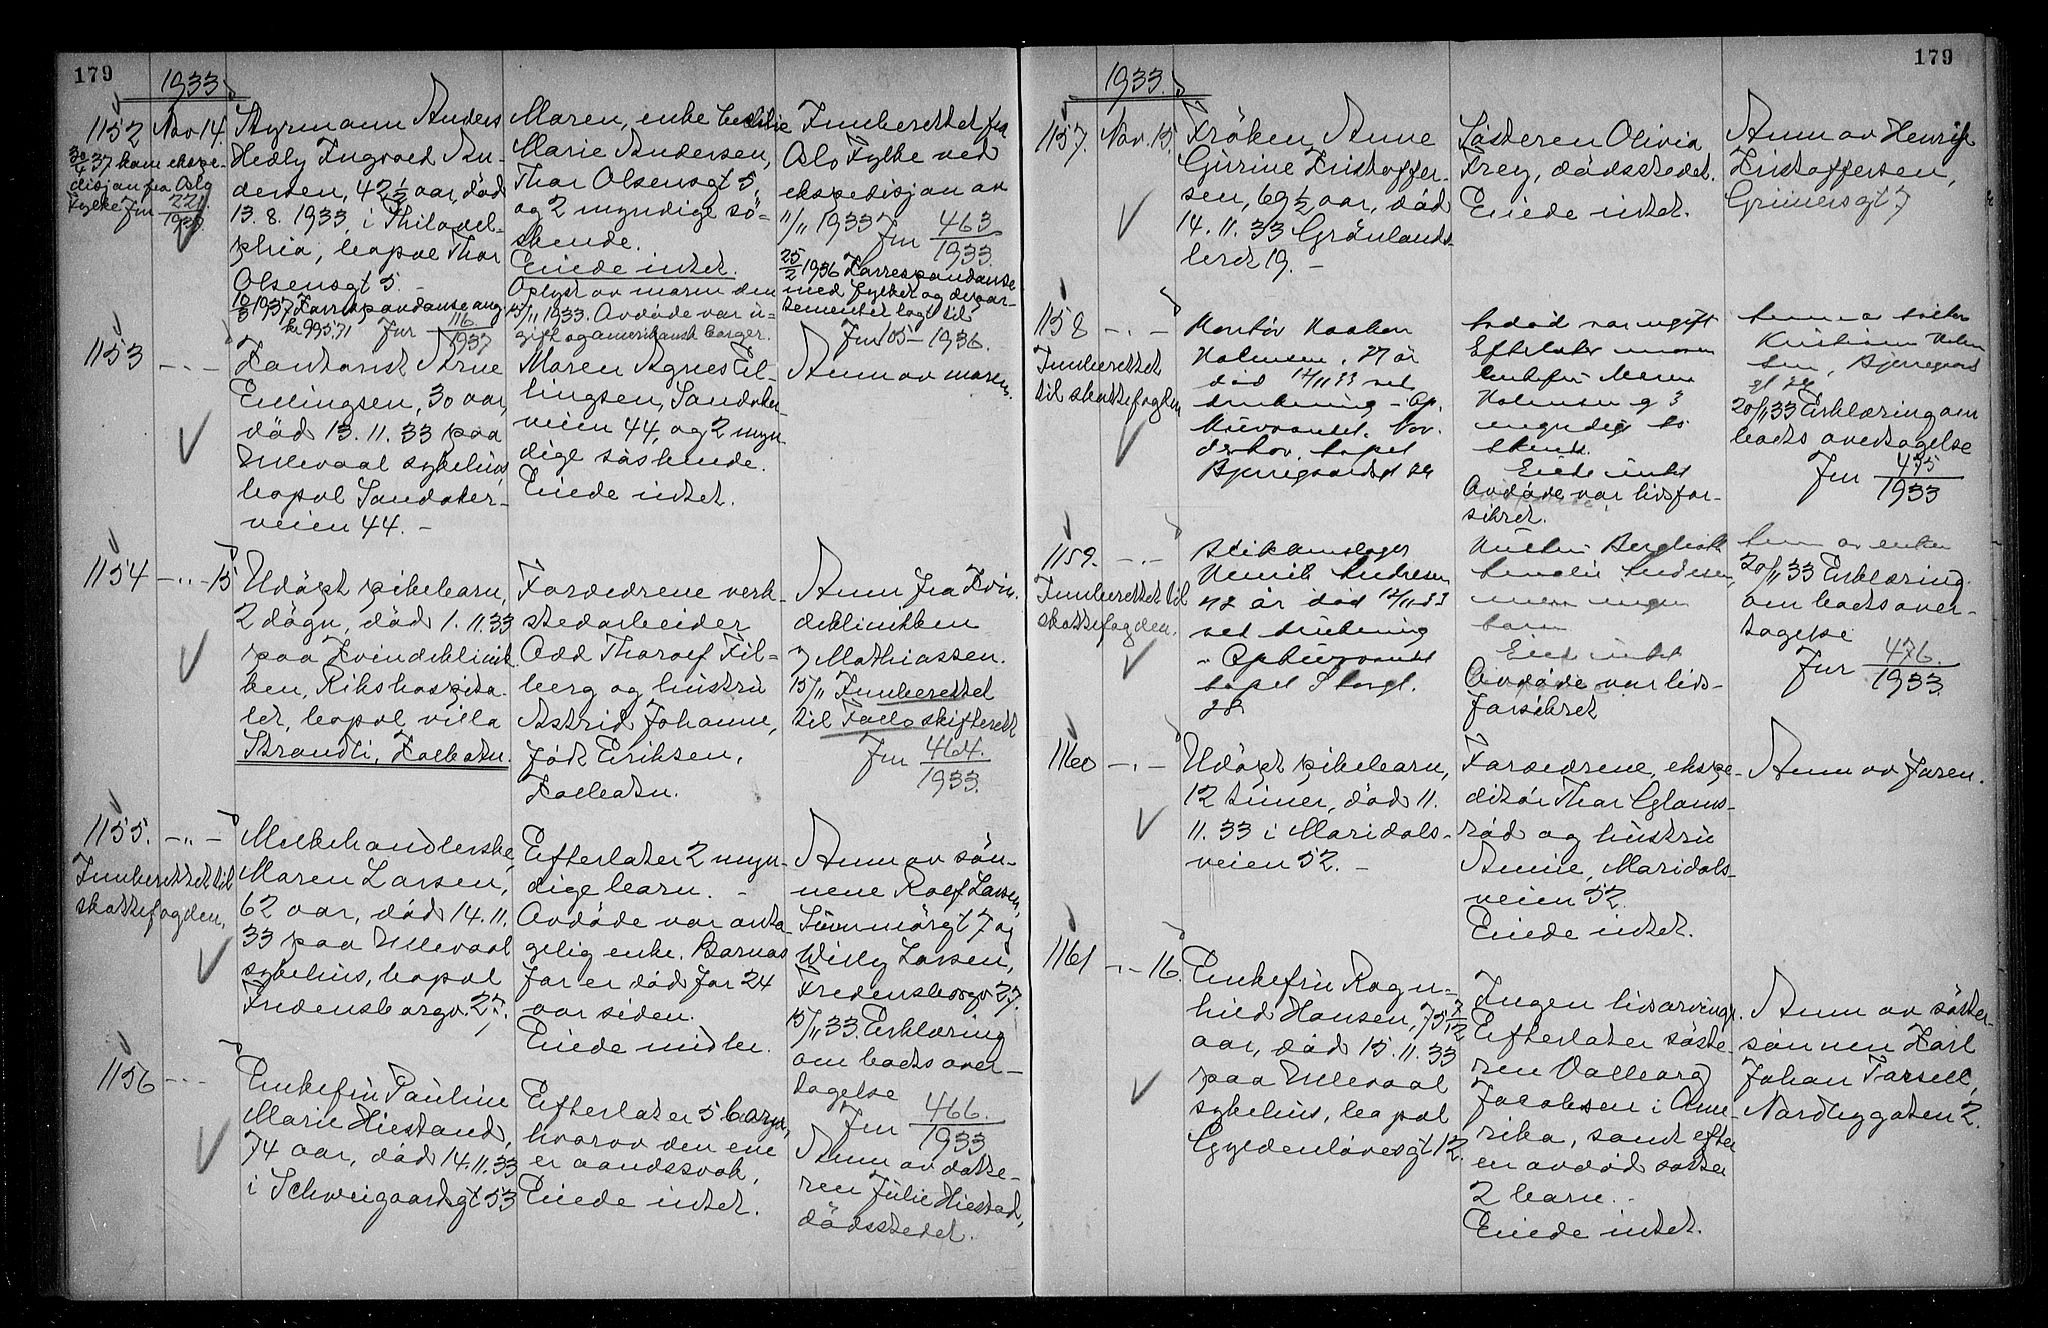 179
1933
1152
Nov 14.
30/4 37 kom ekspe-
disjon fra Oslo
fylke Jnr 221/1933
Styrmann Anders
Hedly Ingvald An-
dersen, 42 1/2 aar, död
13.8.1933 i Philadel-
phia, bopæl Thor
Olsensgt 5. -
10/3 1937 Korrespondanse ang
kr 995.71 Jnr 116/1937
Moren, enke Cecilie
Marie Andersen,
Thor Olsensgt 5,
og 2 myndige sö-
skende.
Eiede intet.
Oplyst av moren den
15/11 1933. Avdöde var u-
gift og amerikansk borger.
Innberettet fra
Oslo Fylke ved
ekspedisjon av
11/11 1933 Jnr 463/1933.
25/2 1936 Korrespondanse
med fylket og depar-
tementet lagt til
Jnr 105 - 1936.
1153
- " -
Kontorist Arne
Ellingsen, 30 aar,
död 13.11.33 paa
Ullevaal sykehus,
bopæl Sandaker-
veien 44. -
Moren Agnes El-
lingsen, Sandaker-
veien 44, og 2 myn-
dige söskende.
Eiede intet.
Anm av moren.
1154
- " - 15
Udöpt pikebarn,
2 dögn, död 1.11.33
paa Kvindeklinik-
ken, Rikshospita-
let, bopæl villa
Strandli, Kolbotn.
Forældrene verk-
stedarbeider
Odd Thorolf Fil-
berg og hustru
Astrid Johanne,
född Eriksen,
Kolbotn.
Anm fra Kvin-
deklinikken
v Mathiassen.
15/11 Innberettet
til Follo skifterett
Jnr 464/1933.
1155.
- " -
Innberettet til
skattefogden.
Melkehandlerske
Maren Larsen,
62 aar, död 14.11.
33 paa Ullevaal
sykehus, bopæl
Fredensborgv. 27.
Efterlater 2 myn-
dige barn. -
Avdöde var anta-
gelig enke. Barnas
far er död for 24
aar siden.
Eiede midler.
Anm av sön-
nene Rolf Larsen,
Sunnmörgt 7 og
Willy Larsen,
Fredensborgv 27.
15/11 33. Erklæring
om boets over-
tagelse
Jnr 466/1933
1156
- " -
Enkefru Pauline
Marie Hiestand,
74 aar, död 14.11.33
i Schweigaardsgt 53
Efterlater 5 barn,
hvorav den ene
er aandssvak,
Eiede intet.
Anm av datte-
ren Julie Hiestad,
dödsstedet.
179
1933.
1157.
Nov. 15.
Fröken Anne
Gurine Kristoffer-
sen, 69 1/2 aar, död
14.11.33 Grönlands-
leret 19. -
Sösteren Olivia
Frey, dödsstedet.
Eiede intet.
Anm av Henrik
Kristoffersen,
Grünersgt 7
1158
- " -
Innberettet
til skattefogden
Kontör Haakon
Holmsen, 27 år
död 12/11 33 ved
drukning - Op.
bopæl
Bjerregaardsgt 29
Avdöd var ugift
Efterlater moren
enkefru
Holmsen og 3
myndige sö-
skende.
Eiede intet
Avdöde var livsfor-
sikret.
Anm av
Kristian Holm
sen, Bjerregaards
gt 29
20/11 33 Erklæring om
boets overtagelse
Jnr 475/1933
1159.
- " -
Innberettet til
skattefogden.
Henrik Andresen
42 år död 12/11 33
ved drukning
bopæl Storgt.
28
Hustru
Andresen,
men ingen
barn
Eiede intet
Avdöde var livs-
forsikret
Anm av enken
20/11 33 Erklæring
om boets over-
tagelse
Jnr 476./1933.
1160
- " -
Udöpt pikebarn,
12 timer, död 11.
11.33 i Maridals-
veien 52. -
Forældrene, ekspe-
ditör Thor Gloms-
röd og hustru
Annie, Maridals-
veien 52.
Eiede intet.
Anm av faren.
1161
- " - 16.
Enkefru Ragn-
hild Hansen, 75 7/12
aar, död 15.11.33
paa Ullevaal
sykehus, bopæl
Gyldenlövesgt 12.
Ingen livsarvinger.
Efterlater söste-
ren Valborg
Jacobsen i Ame-
rika, samt efter
en avdöd söster
2 barn. -
Eiede intet.
Anm av söster-
sönnen Karl
Johan Torsell,
Nordbygaten 2.